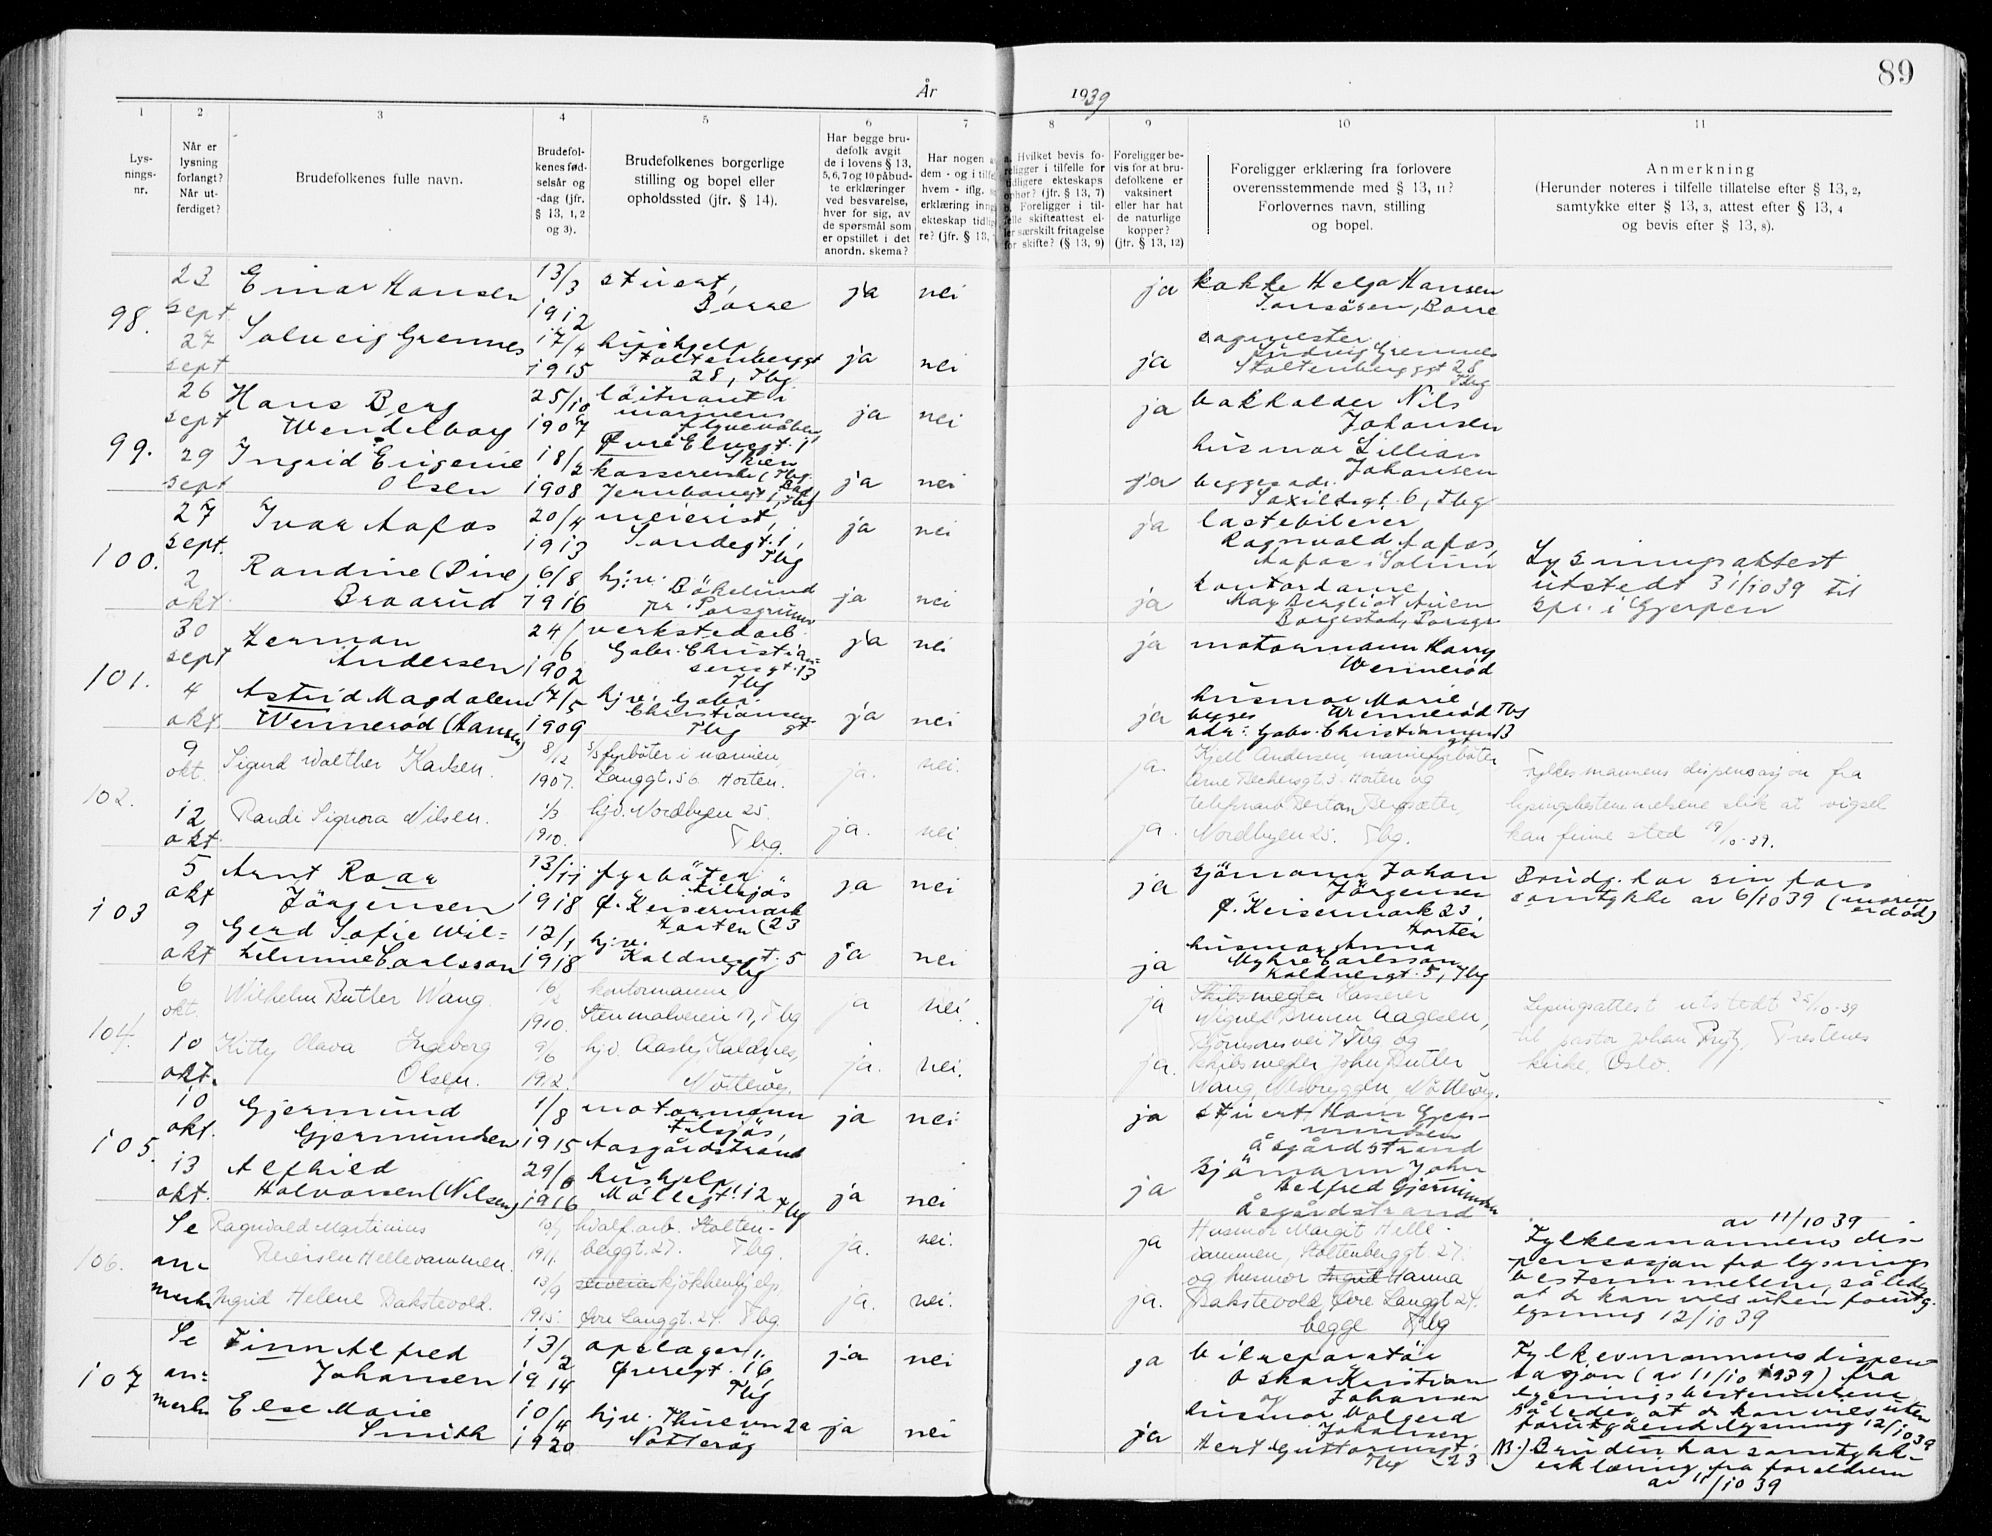 89
År 1939
1 2 3 4 5 6 7 8 9 10 11
Lys-
nings-
nr.
Når er
lysning
forlangt?
Når ut-
ferdiget?
Brudefolkenes fulle navn.
Brudefol-
kenes fød-
selsår og
-dag (jfr.
§ 13, 1, 2
og 3).
Brudefolkenes borgerlige
stilling og bopel eller
opholdssted (jfr. § 14).
Har begge bru-
defolk avgit
de i lovens § 13,
5, 6, 7 og 10 påbud-
te erklæringer
ved besvarelse,
hver for sig, av
de spørsmål som
er opstillet i det
anordn. skema?
Har nogen a
dem - og i tilfe
hvem - iflg.
erklæring inng
ekteskap tidlig
re? (jfr. § 13,
a. Hvilket bevis fo-
religger i tilfelle for
tidligere ekteskaps
ophør? (jfr. § 13, 7)
b. Foreligger i til-
felle skifteattest el-
ler særskilt fritagelse
for skifte? (§ 13, 9)
Foreligger be-
vis for at bru-
defolkene er
vaksinert
eller har hat
de naturlige
kopper?
(jfr. § 13, 12)
Foreligger erklæring fra forlovere
overensstemmende med § 13, 11?
Forlovernes navn, stilling
og bopel.
Anmerkning
(Herunder noteres i tilfelle tillatelse efter § 13, 2,
samtykke efter § 13, 3, attest efter § 13, 4
og bevis efter § 13, 8).
98.
23 sept. Einar Hansen 13/3 1912 stuert, Borre ja nei ja kokke Helga Hansen
Borre
27 sept Solveig Grennes 17/4 1915 hushjelp, Stoltenberggt 28, Tbg. ja nei ja
Ludvig Grennes
Stoltenberggt 28
Tbg
99.
26 sept Hans Berg Wendelborg 25/10 1907 løitnant i marinens flyvevåben
Øvre Elvegt. 1 Skien ja nei ja bokholder Nils
Johansen
29 sept Ingrid Eugenie Olsen 18/2 1908 kassererske (Tbg. Bad)
Jernbanegt 1, Tbg ja nei ja husmor Lillian
Johansen
begges adr.
6, Tbg
100.
27 sept. Ivar Aafos 20/4 1913 meierist, Tbg ja nei ja lastebileier
Ragnvald Aafos,
Aafos i Solum
2 okt. Randine (Dine) Braarud 6/8 1916 hj.v. Bökelund pr. Porsgrunn ja nei ja kontordame
Borgestad, Porsgr
Lysningsattest
utstedt 31/10 39 til
spr. i Gjerpen
101.
30 sept Herman Andersen 24/6 1902 verkstedarb. Gabr. Christian-
sensgt. 13 Tbg ja nei ja motormann Harry
Wennerød
4 okt Astrid Magdalene Wennerød (Hansen) 17/5 1909 hj.v. Gabr.
Christiansens
gt Tbg ja nei ja husmor Marie
Wennerød Tbg
begges
adr: Gabr. Christiansens gt 13
102.
9 okt. Sigurd Walther Karlsen. 8/12 1907. fyrbøter i marinen,
Langgt. 56. Horten. ja. nei. ja. Kjell Andersen, marinefyrbøter
3. Horten og
12 okt Randi Signora Nilsen. 1/3 1910. hjv. Nordbyen 25. Tbg. ja. nei ja.
Nordbyen 25. Tbg.
Fylkesmannens dispensasjon fra
lysingsbestemmelsene slik at vigsel
kan finne sted 19/10-39.
103
5 okt Arnt Roar Jörgensen 13/11 1918 fyrböter tilsjös
Ø. Keisermark 23 Horten ja nei ja sjömann Johan
Jörgensen
Ø. Keisermark 23,
Horten
9 okt Gerd Sofie Wil=
helmine Carlsson 12/1 1918 hj.v. Kaldnesgt. 5 Tbg ja nei ja husmor Anna
Myhre Carlsson
Kaldnesgt. 5, Tbg
Brudg. har sin fars
samtykke av 6/10 39 (moren
er död)
104.
6 okt. Wilhelm Butler Wang. 16/2 1910. kontormann,
Stenmalveien 17, Tbg ja nei. ja Kasserer
Aagesen,
7 Tbg og
10 okt. Kitty Olava Ingeborg Olsen. 9/6 1912. hjv. Kaldnes,
Nötteröy. ja. nei. ja. skibsmegler John Butler
Wang, Nötteröy.
Lysingsattest utstedt 25/10-39
til pastor Johan
kirke, Oslo.
105.
10 okt. Gjermund Gjermundsen 1/8 1915 motormann
tilsjös,
Aasgårdstrand ja nei ja stuert Hans Gjer-
mundsen
Åsgårdstrand
13 okt. Alfhild
Halvorsen (Nilsen) 29/6 1916 hushjelp,
Möllegt. 12 Tbg ja nei ja sjömann John
Gjermundsen
Åsgårdstrand
106.
Se
an-
merkn Ragnvald Martinius
Reiersen Hellevammen. 10/7 1911. Stolten-
berggt. 27. Tbg. ja. nei. ja Husmor Margit Helle-
vammen, Stoltenberggt. 27.
Ingrid Helene Bakstevold. 13/9 1915. kjökkenhjelp,
Øvre Langgt. 24. Tbg ja. nei. ja. og husmor Hanna
Bakstevold, Øvre Langgt 24.
begge Tbg
av 11/10 39
Fylkesmannens dis-
pensasjon fra lysnings
bestemmelsene, således
at de kan vies uten forutg.
lysning 12/10 39
107
Se
an=
merkn Finn Alfred Johansen 13/2 1914 oplager,
Øvregt. 16, Tbg ja nei ja bilreparatör
Oskar Kristian
Johansen
og
Else Marie Smith 10/4 1920 hj.v. 2a
Nötteröy ja nei ja husmor Valgerd
Johansen
23
Tbg
Fylkesmannens dispen-
sasjon (av 11/10 1939) fra
lysningsbestemmelsene
således at de kan vies uten
forutgående lysning 12/10 39
NB.) Bruden har samtykke-
erklæring fra foreldrene
av 11/10 39